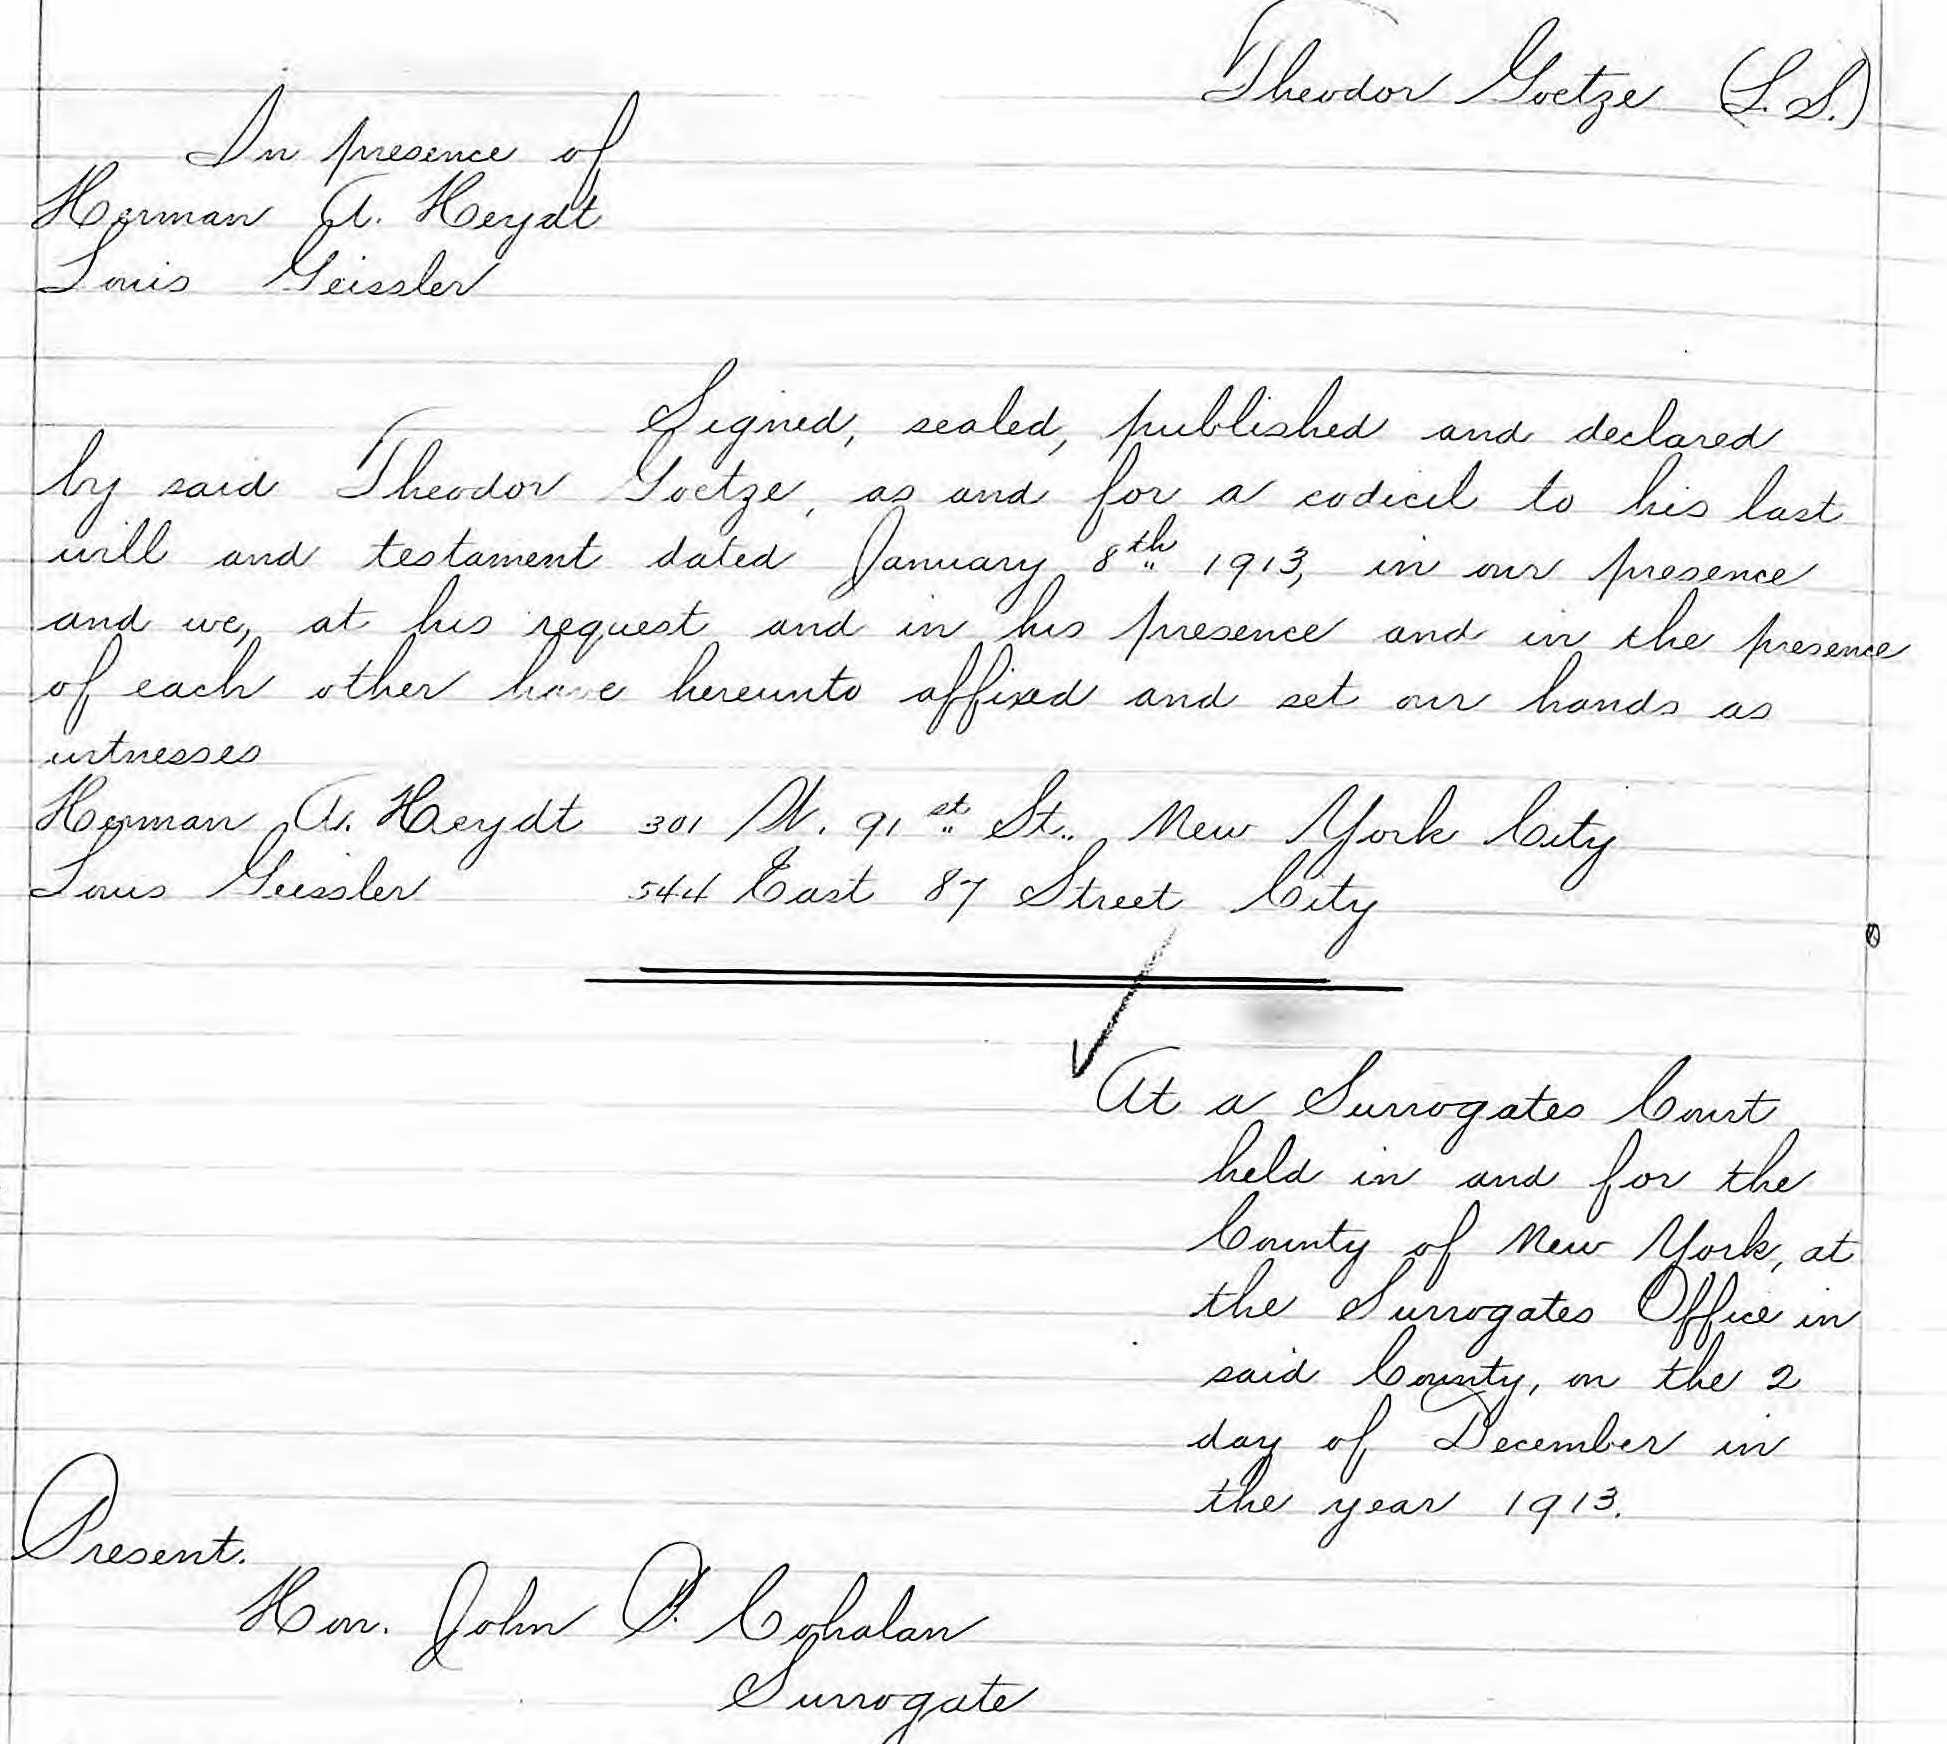 Theodor Goetze (L. S.)
In presence of
Herman A. Heydt
Louis Geissler
Signed, sealed, published and declared
by said Theodor Goetze, as and for a codicil to his last
will and testament dated January 8th 1913, in our presence
and we, at his request and in his presence and in the presence
of each other have hereunto affixed and set our hands as
witnesses
Herman A. Heydt 301 W. 91st St., New York City
Louis Geissler 544 East 87 Street City
At a Surrogates Court
held in and for the
County of New York, at
the Surrogates Office in
said County, on the 2
day of December in
the year 1913.
Present.
Hon. John P. Cohalan
Surrogate